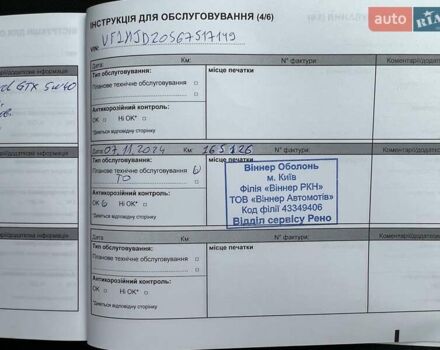 auto RIA
ІНСТРУКЦІЯ ДЛЯ ОБСЛУГОВУВАННЯ (4/6)
VIN: VF1HJD20567517149
Дата: Км: N° фактури: Коментарі/додатков
Тип обслуговування: місце печатки
Планове технічне обслуговування
Антикорозійний контроль:
OK Ні OK*
*Дивіться відповідну сторінку
GTX 5w40
Дата: 07.11.2024 Км: 165126 N° фактури: Коментарі/додатков
Тип обслуговування: місце печатки
Планове технічне обслуговування
ТО
Антикорозійний контроль:
OK Ні OK*
*Дивіться відповідну сторінку
Віннер Оболонь
м. Київ
Філія «Віннер РКН»
ТОВ «Віннер Автомотів»
Код філії 43349406
Відділ сервісу Рено
Дата: Км: N° фактури: Коментарі/додатков
Тип обслуговування: місце печатки
Планове технічне обслуговування
Антикорозійний контроль:
OK Ні OK*
*Дивіться відповідну сторінку